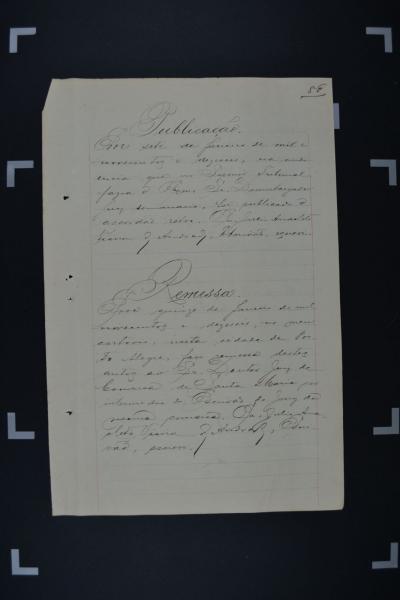 86
Publicação.
Em sete de Janeiro de mil e
novecentos e dezeseis, na audi
encia que no Egregio Tribunal
fazia o Exmo. Sr. Desembargador
Juiz semanario, foi publicado o
accordão retro.
de Andrade, Escrivão, escrevi.
Remessa.
Aos quinze de Janeiro de mil
novecentos e dezeseis, no meu
cartorio, nesta cidade de Por
to Alegre, faço remessa destes
autos ao Sr. Dr. Juiz da
Comarca de Santa Maria por
intermedio do Escrivão do Jury da
mesma comarca. Eu,
Vieira de Andrade, Escri
vão, escrevi.